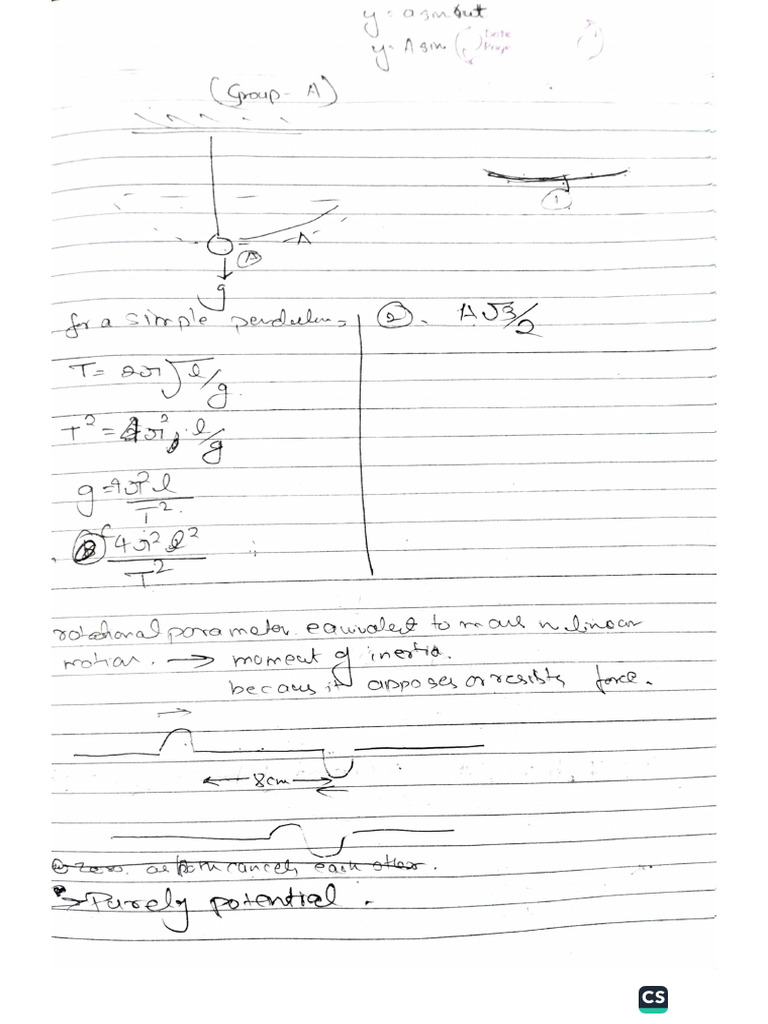 y = a sin ωt
y = A sin
(Group - A)
A
A
1
g
for a simple pendulum,
T = 2π√l/g
T² = 4π² l/g
g = 4π²l
T²
4π² l²
T²
2. A√3/2
rotational parameter equivalent to mass in linear
motion. → moment of inertia.
becaus it opposes or resists force.
8cm
zero. as both cancels each other.
→ Purely potential.
CS